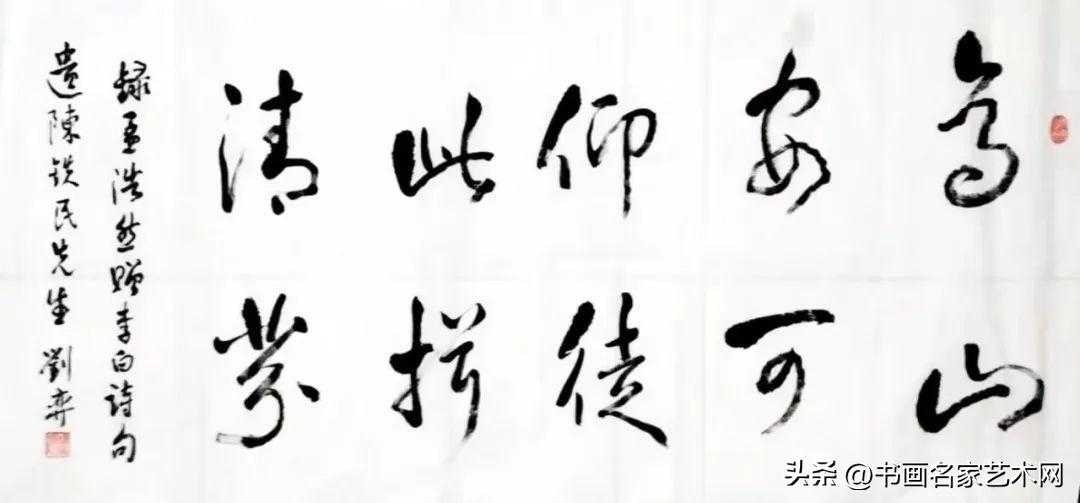 高山
安可
仰徒
此揖
清芬
録孟浩然贈李白詩句
遺陳铁民先生 劉弈
头条@书画名家艺术网